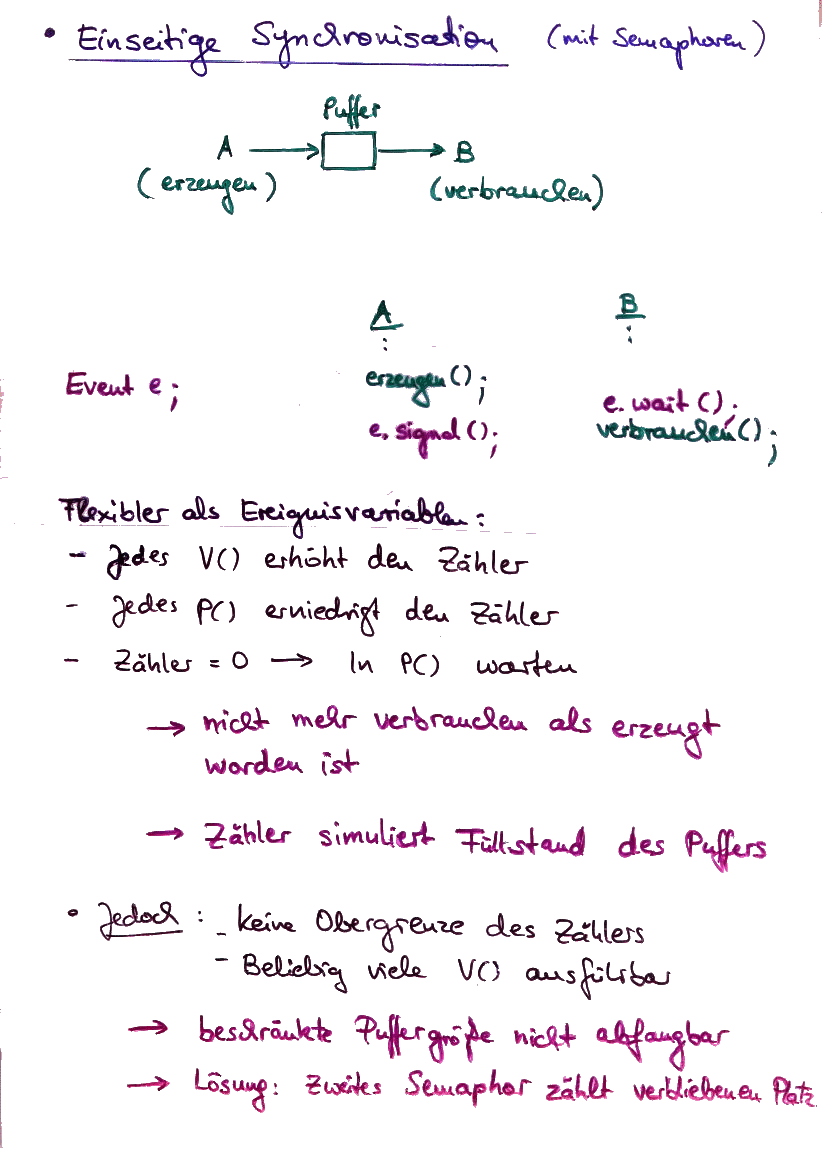 • Einseitige Synchronisation (mit Semaphoren)
Puffer
A → → B
(erzeugen) (verbrauchen)
A B
: :
Event e; erzeugen();
e.wait();
e.signal(); verbrauchen();
Flexibler als Ereignisvariablen:
- Jedes V() erhöht den Zähler
- Jedes P() erniedrigt den Zähler
- Zähler = 0 → In P() warten
→ nicht mehr verbrauchen als erzeugt
worden ist
→ Zähler simuliert Füllstand des Puffers
• Jedoch: - keine Obergrenze des Zählers
- Beliebig viele V() ausführbar
→ beschränkte Puffergröße nicht abfangbar
→ Lösung: Zweites Semaphor zählt verbliebenen Platz